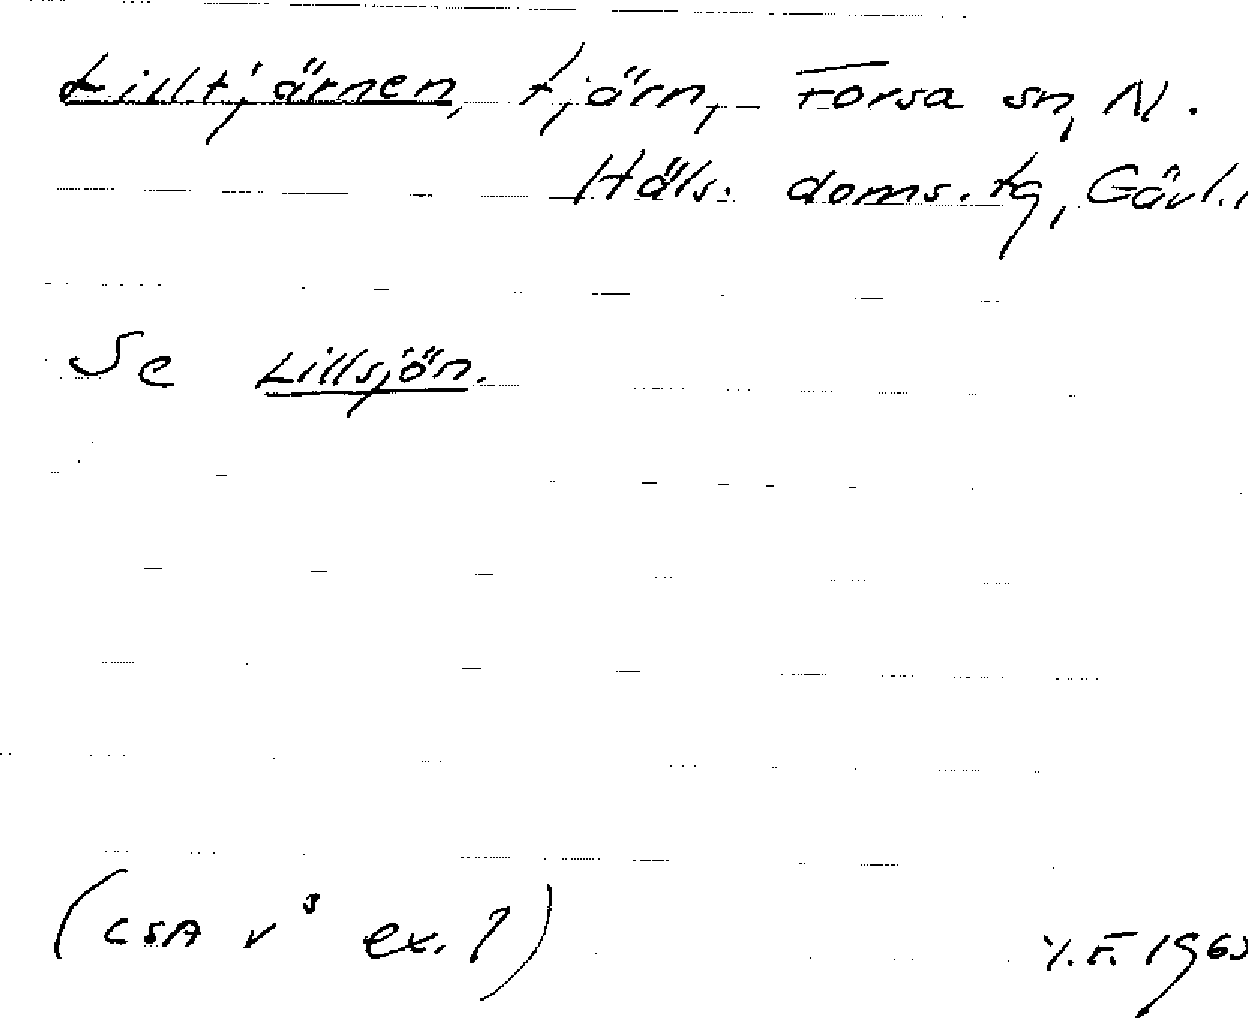 Lilltjärnen, tjärn, Forsa sn, N.
Häls. doms. tg, Gävl.
Se Lillsjön.
(LSA ex.?)
F. 196